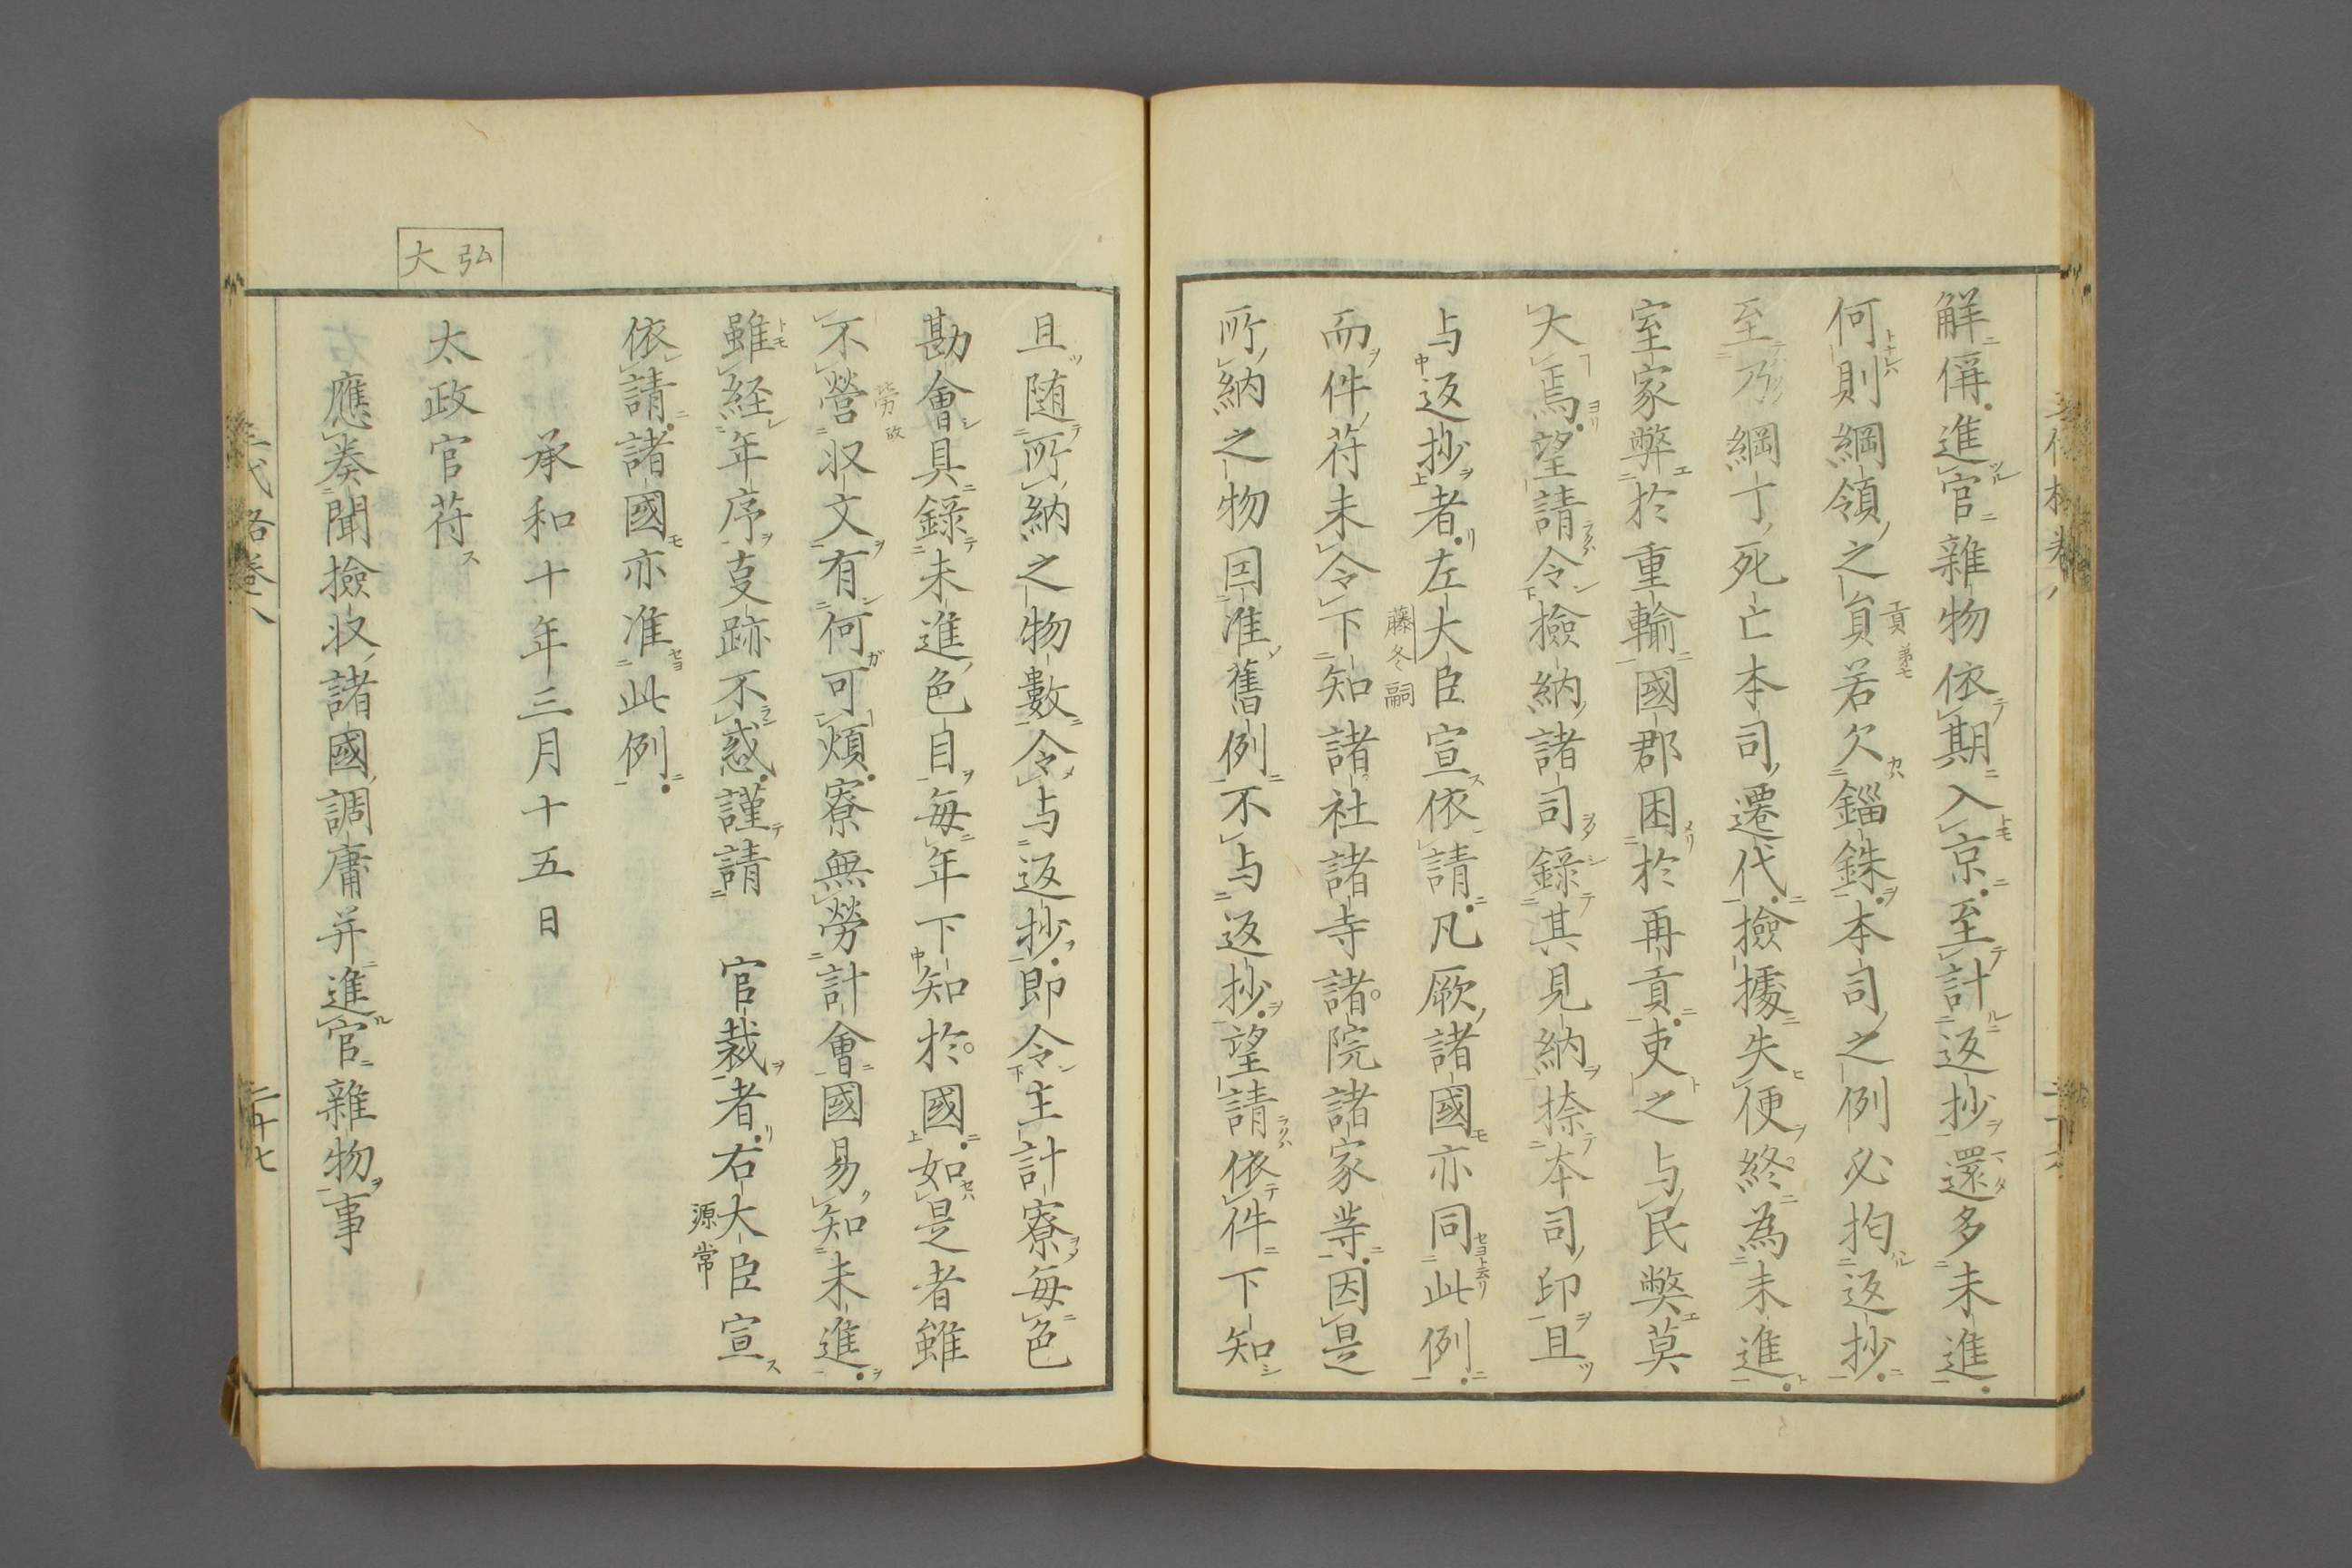 解偁進官雜物依期入京至計返抄還多未進
何則綱領之貟若欠錙銖本司之例必拘返抄
至乃綱丁死亡本司遷代撿據失便終為未進
室家弊於重輸國郡困於再貢吏之与民獘莫
大焉望請令撿納諸司錄其見納捺本司印且
与返抄者左大臣宣依請凡厥諸國亦同此例
藤冬嗣
而件苻未令下知諸社諸寺諸院諸家䒭因是
所納之物因准舊例不与返抄望請依件下知
且随所納之物數令与返抄即令主計寮每色
勘會具錄未進色目每年下知於國如是者雖
不營収文有何可煩寮無勞計會國易知未進
雖経年序㕝跡不惑謹請　官裁者右大臣宣
源常
依請諸國亦准此例
承和十年三月十五日
弘大
太政官苻
應奏聞撿収諸國調庸并進官雜物事
三代格卷八
二十七